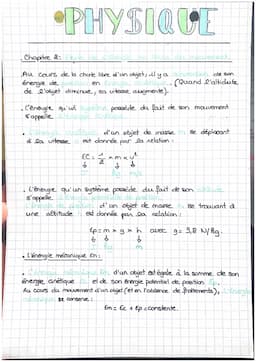 PHYSIQUE
Chapitre 2:
Au cours de la chute libre d'un objet, il y a de son
énergie de en (Quand l'altitude
de l'objet diminue, sa vitesse augmente).
L'énergie qu'un système possède du fait de son mouvement
s'appelle
L'énergie cinétique d'un objet de masse m se déplaçant
à la vitesse est donnée par la relation :
EC = 1/2 × m × v²
kg m/s
L'énergie qu'un système possède du fait de son altitude
s'appelle
d'un objet de masse m se trouvant à
une altitude h est donnée par la relation :
Ep = m × g × h avec g = 9,8 N/kg.
L'énergie mécanique Em :
L'énergie mécanique Em d'un objet est égale à la somme de son
énergie cinétique Ec et de son énergie potentiel de position Ep.
Au cours du mouvement d'un objet (et en l'absence de frottements), L'énergie
mécanique se conserve :
Em = Ec + Ep = constante.